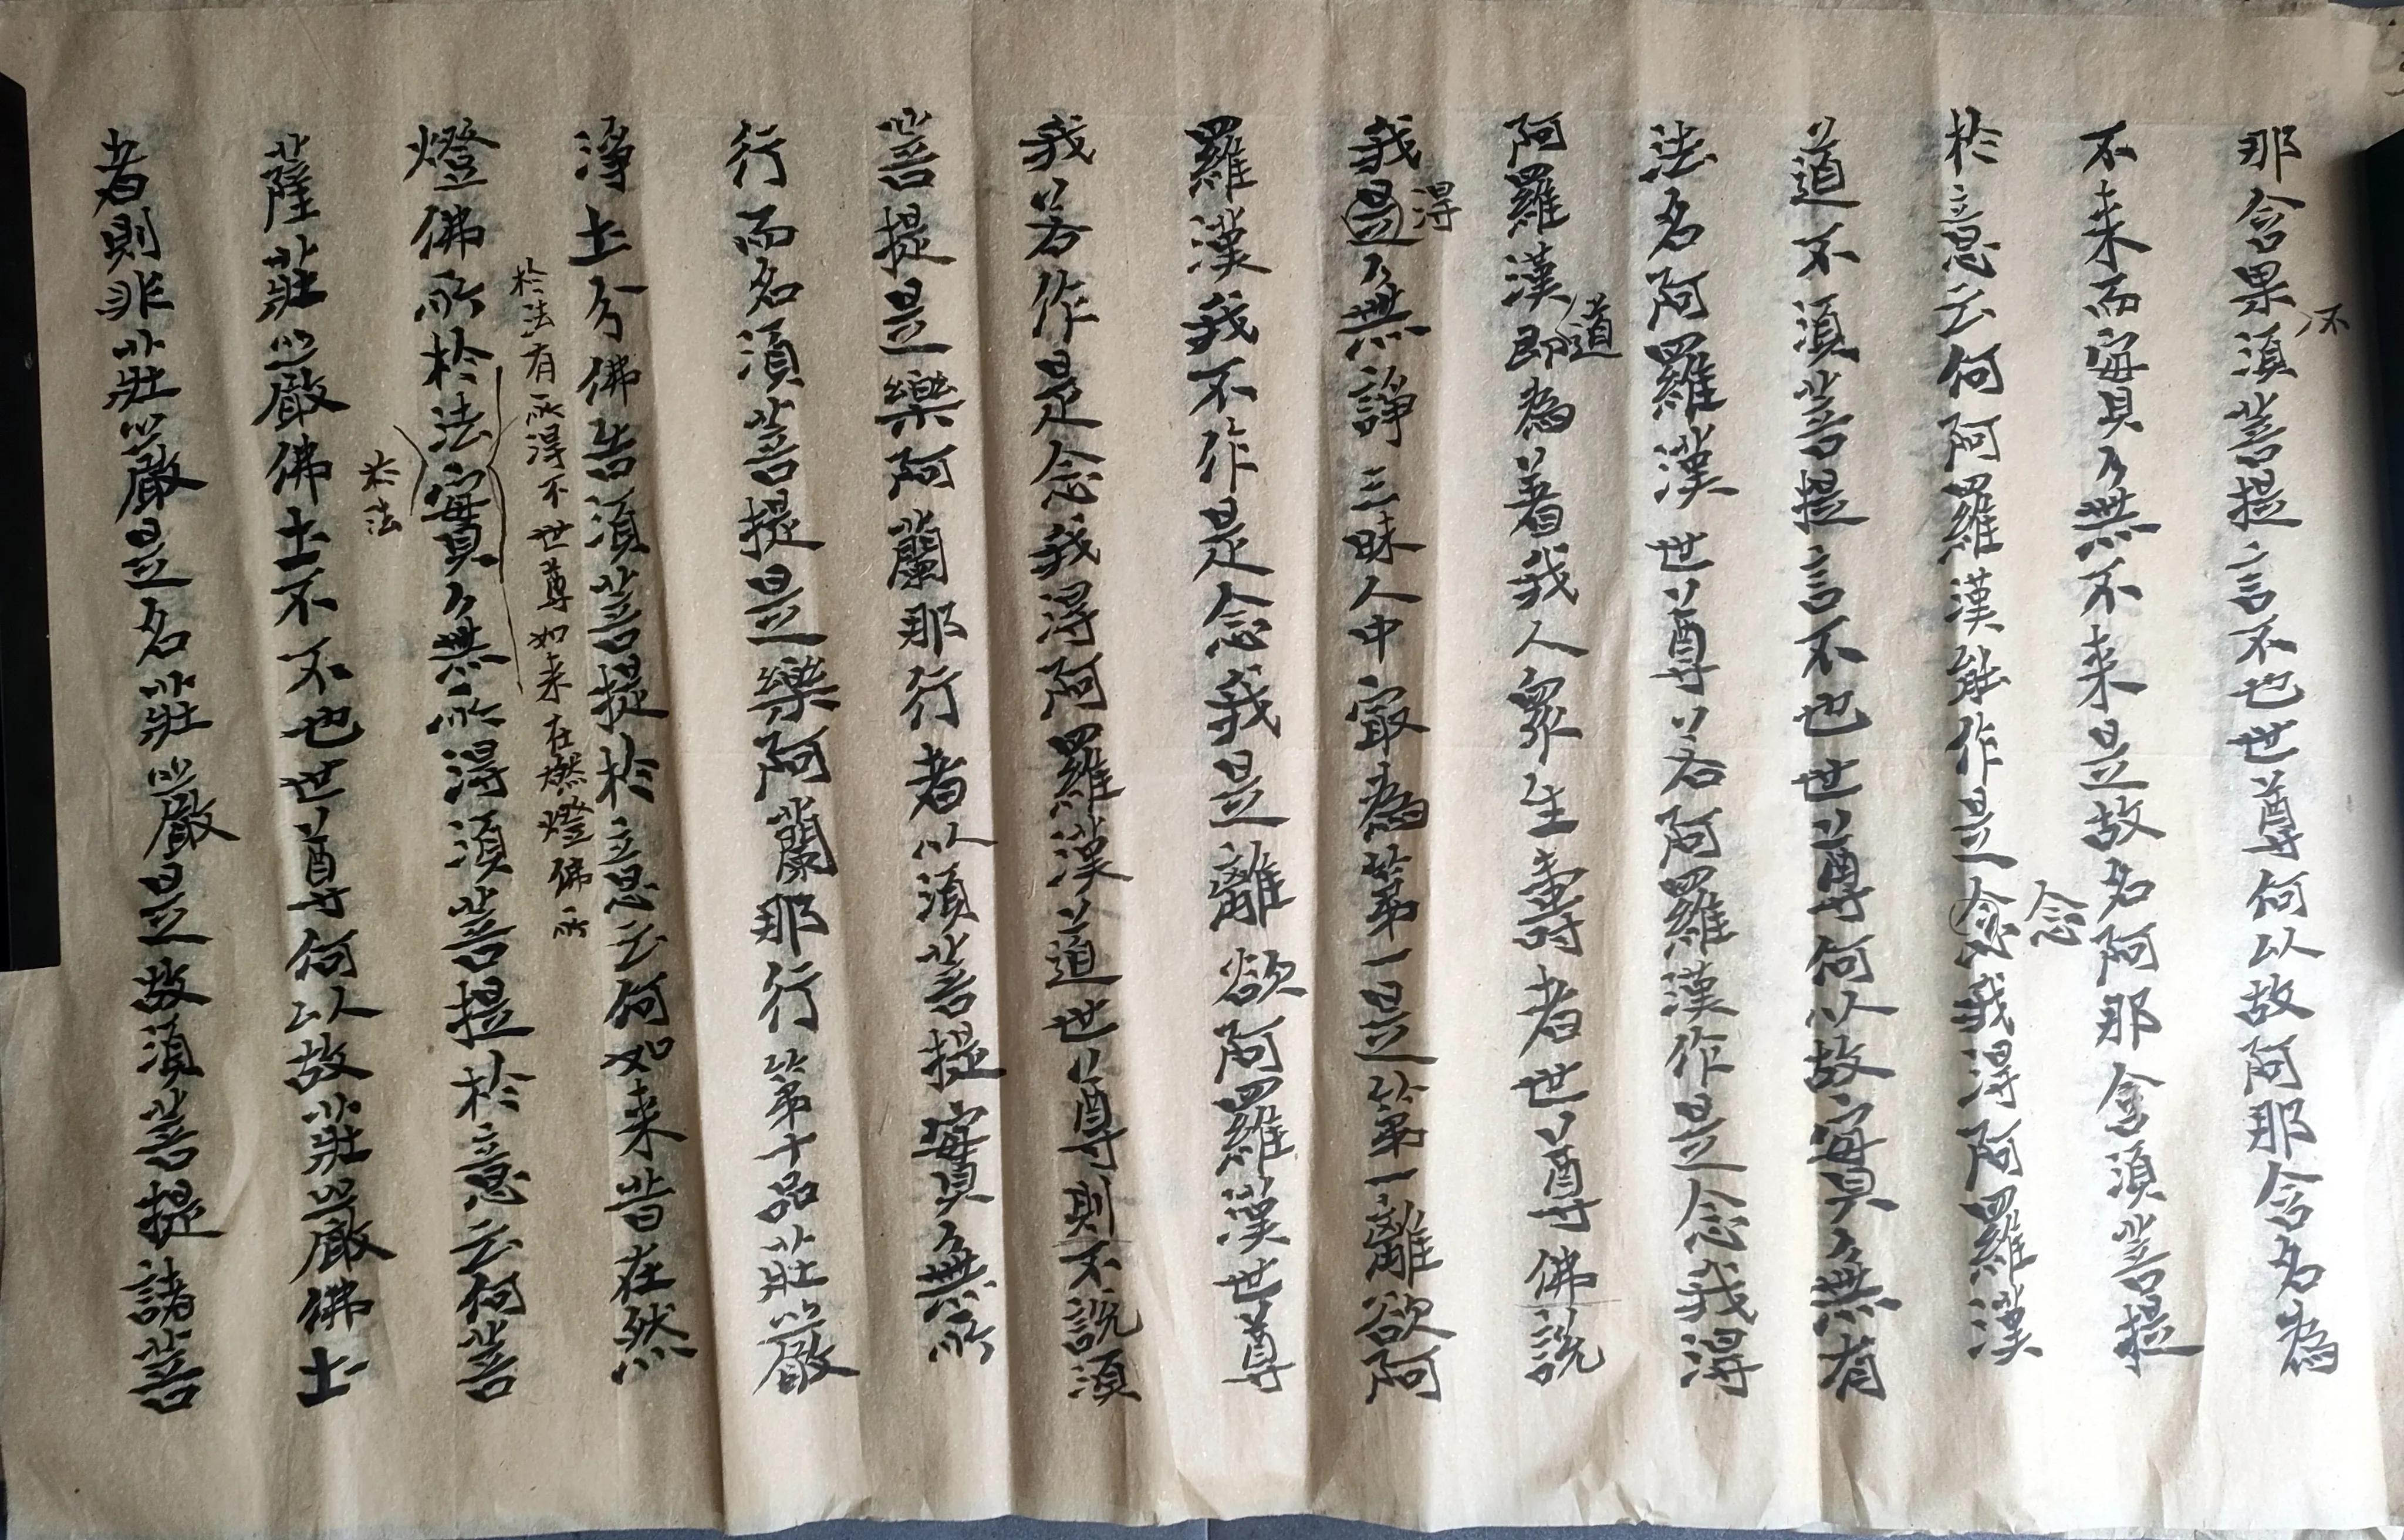 那含果須菩提言不也世尊何以故阿那含名為
不
不来而實无無不来是故名阿那含須菩提
於意云何阿羅漢能作是念我得阿羅漢
念
道不須菩提言不也世尊何以故實无無有
法名阿羅漢世尊若阿羅漢作是念我得
阿羅漢即為著我人衆生壽者世尊佛説
道
我是无無諍三昧人中寂為第一是第一離欲阿
得
羅漢我不作是念我是離欲阿羅漢世尊
我若作是念我得阿羅漢道世尊則不説須
菩提是樂阿蘭那行者以須菩提實无無所
行而名須菩提是樂阿蘭那行第十品莊嚴
淨土分佛告須菩提於意云何如来昔在然
於法有所得不世尊如来在燃燈佛所
燈佛所於法實无無所得須菩提於意云何菩
於法
薩莊嚴佛土不不也世尊何以故莊嚴佛土
者則非莊嚴是名莊嚴是故須菩提諸菩